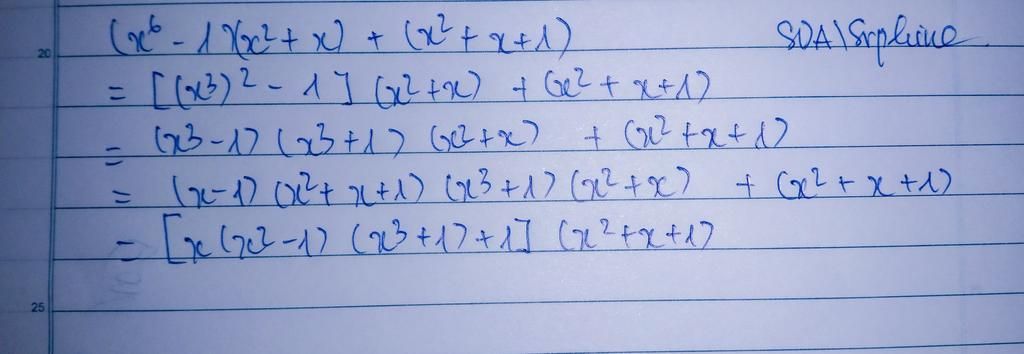 20
(x⁶ - 1)(x² + x) + (x² + x + 1) SDA\Srphine
= [(x³)² - 1] (x² + x) + (x² + x + 1)
= (x³ - 1) (x³ + 1) (x² + x) + (x² + x + 1)
= (x - 1) (x² + x + 1) (x³ + 1) (x² + x) + (x² + x + 1)
= [x (x² - 1) (x³ + 1) + 1] (x² + x + 1)
25